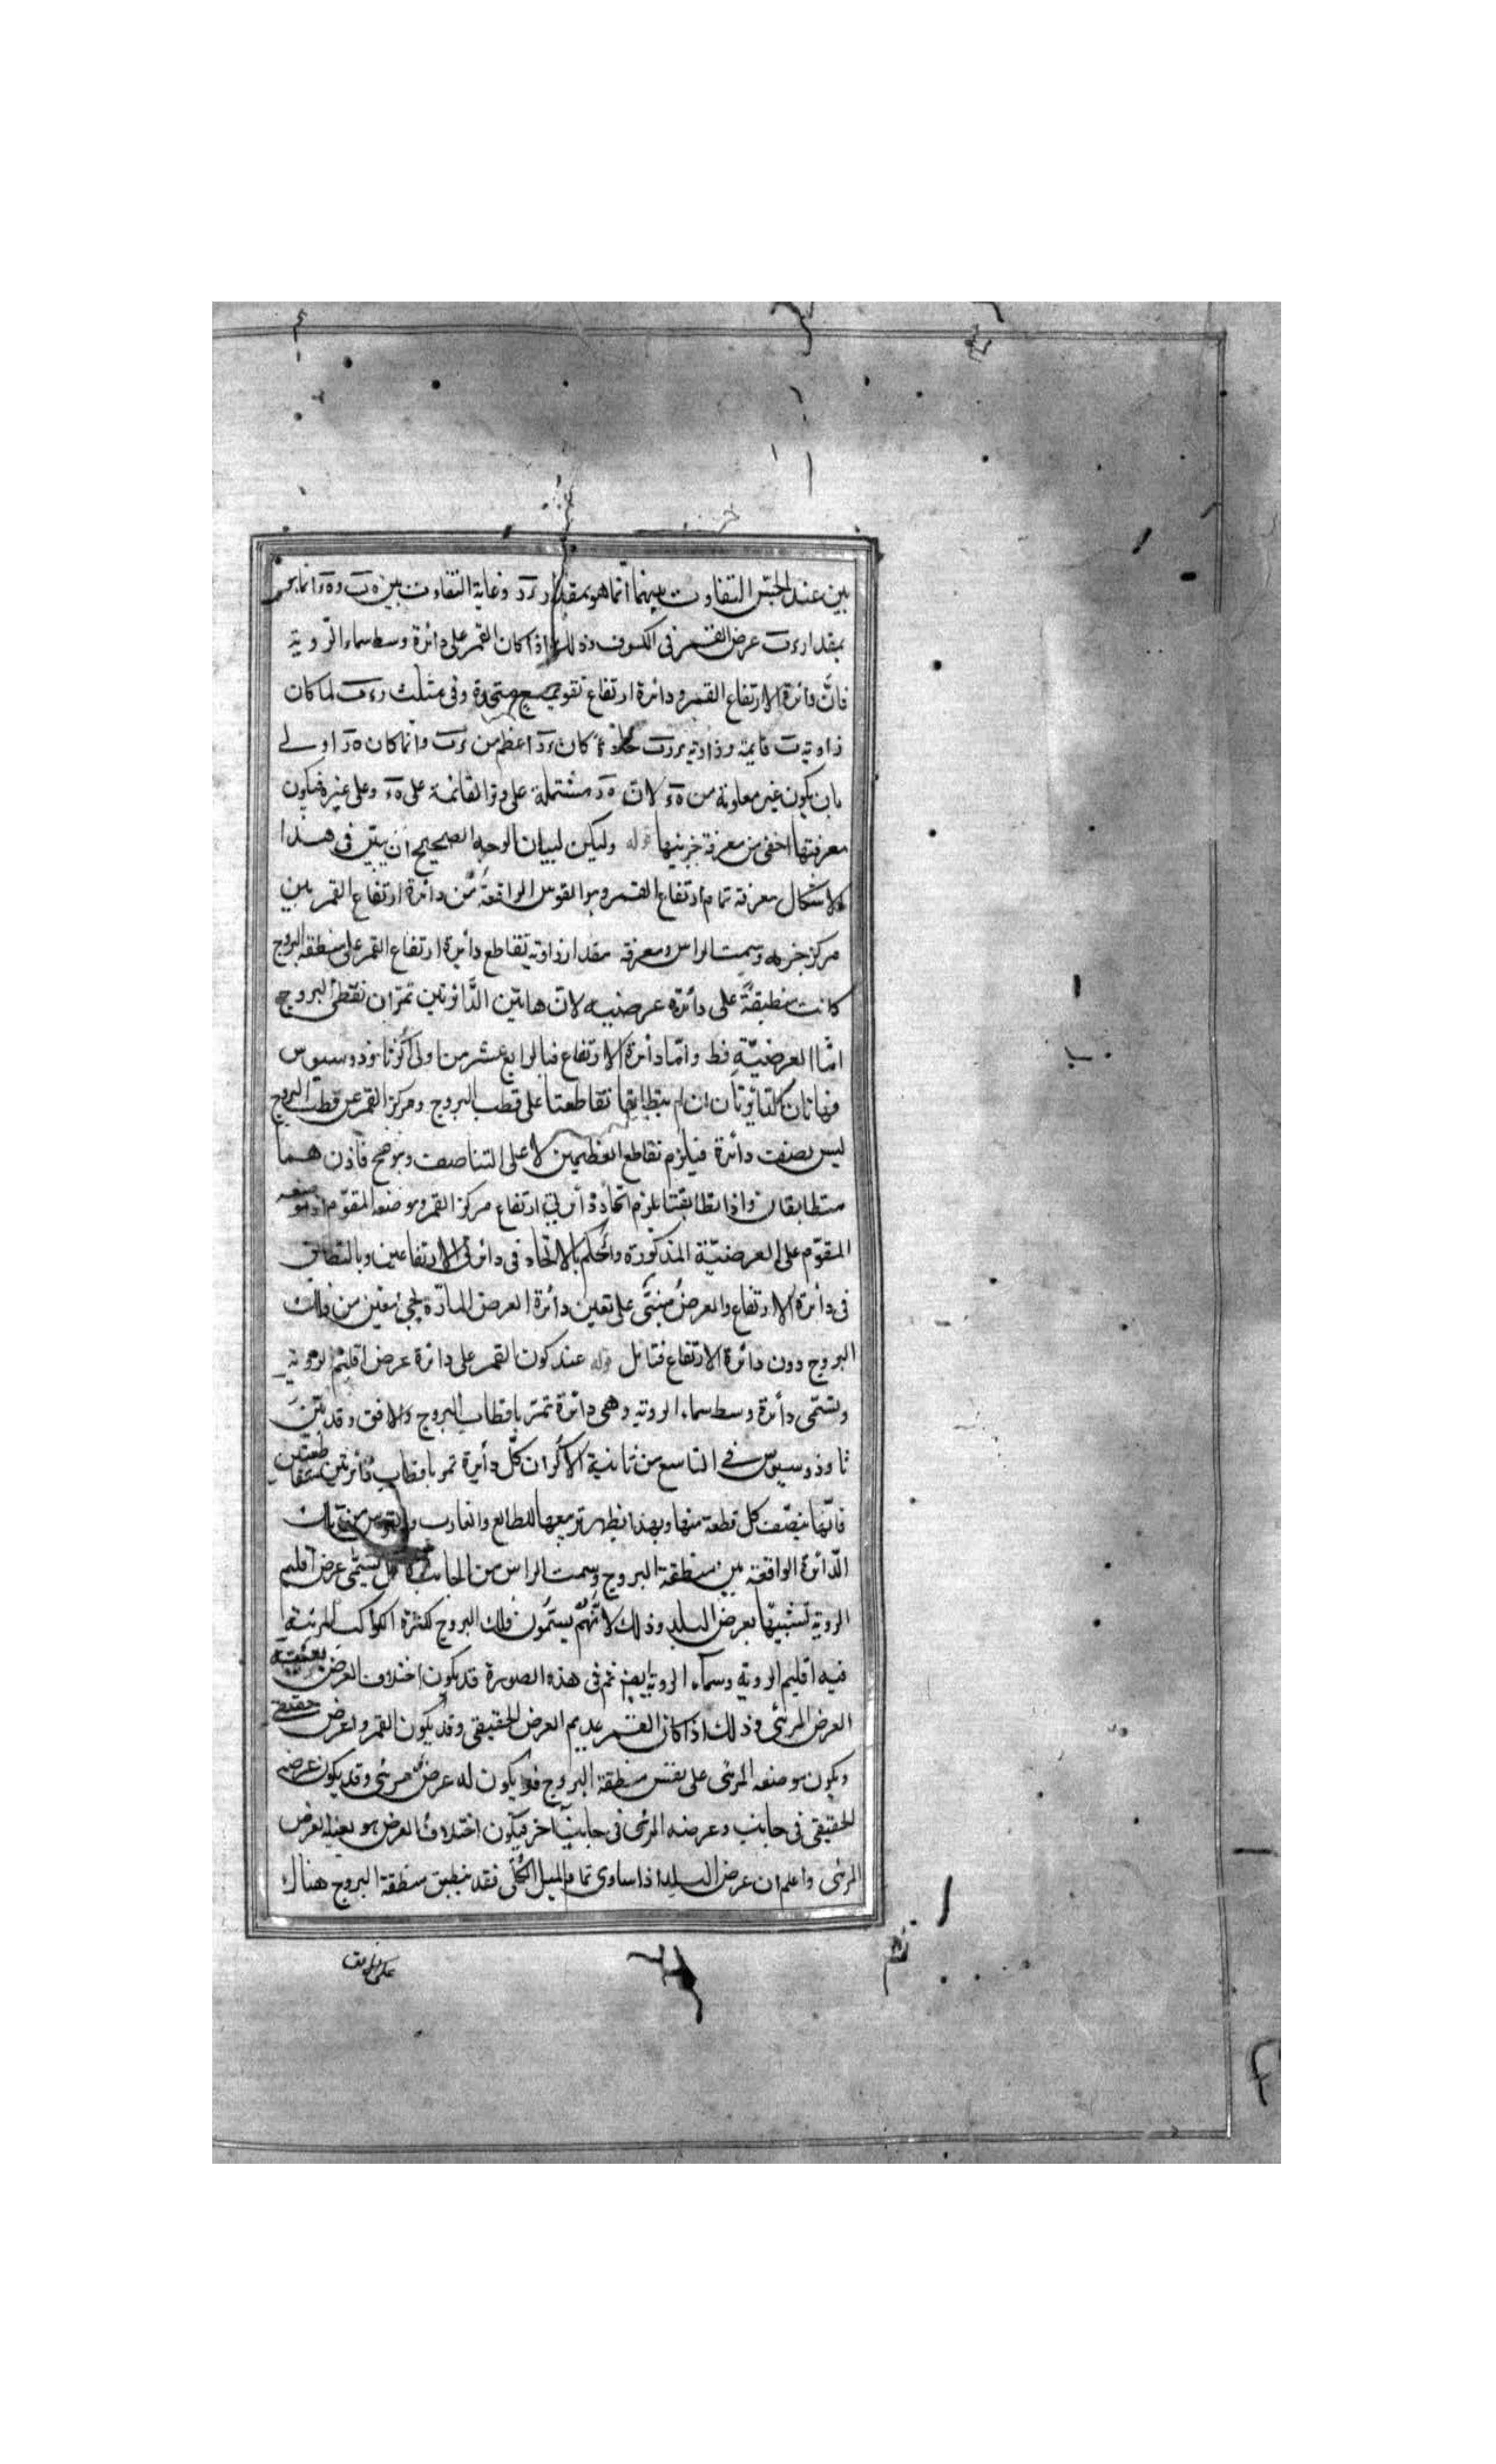 بين عند الحبس التفاوت بينهما انما هو بمقدار ود وغاية التفاوت بين
بمقدار عرض القمر فى الكسوف وذلك اذا كان القمر على دائرة وسط سماء الروية
فان دائرة الارتفاع القمر ودائرة ارتفاع تقويمه متحدة وفى مثلث لما كان
زاوية قايمة وزاوية حادة كان اعظم من وانما كان اولى
بان يكون غير معلومة من لان مشتملة على وتر القائمة على وعلى غيره فيكون
معرفتها اخفى من معرفة جزئيها قوله وليكن لبيان الوجه الصحيح ان يبيّن فى هذا
الاشكال معرفة تمام ارتفاع القمر وهو القوس الواقعة من دائرة ارتفاع القمر بين
مركز جرمه وسمت الراس ومعرفة مقدار زاوية تقاطع دائرة ارتفاع القمر على منطقة البروج
كانت منطبقة على دائرة عرضيه لان هاتين الدائرتين تمران بقطبى البروج
امّا العرضيّة فظ وامّا دائرة الارتفاع فبالرابع عشر من اولى اكر ثاوذوسيوس
فهاتان الدائرتان ان لم يتطابقا تقاطعتا على قطب البروج ومركز القمر عن قطب البروج
ليس بصنف دائرة فيلزم تقاطع العظيمين لا على التناصف وبوضح فاذن هما
متطابقان واذا تطابقتا يلزم اتحاد دائرتى ارتفاع مركز القمر وموضعه المقوّم اذ موضعه
المقوّم على العرضيّة المذكورة والحكم بالاتحاد فى دائرتى الارتفاعين وبالتطابق
فى دائرة الارتفاع والعرض مبنى على تعين دائرة العرض المارّة بجزء معين من فلك
البروج دون دائرة الارتفاع فتامل قوله عند كون القمر على دائرة عرض اقليم الروية
وتسمّى دائرة وسط سماء الروية وهى دائرة تمرّ باقطاب البروج والافق وقد بيّن
ثاوذوسيوس فى التاسع من ثانية الاكر ان كل دائرة تمر باقطاب دائرتين متقاطعتين
فانّها ينصّف كل قطعة منها وبهذا يظهر تربيعها للطالع والغارب والقوس من تلك
الدّائرة الواقعة بين منطقة البروج وسمت الراس من الجانب الاقل يسمّى عرض اقليم
الروية تشبيها بعرض البلد وذلك لانّهم يسمّون فلك البروج لكثرة الكواكب المرئية
فيه اقليم الروية وسماء الروية ايضا ثم فى هذه الصورة قد يكون اختلاف العرض بعينه
العرض المرئى وذلك اذا كان القمر عديم العرض الحقيقى وقد يكون القمر ذا عرض حقيقى
ويكون موضعه المرئى على نفس منطقة البروج فلا يكون له عرض مرئى وقد يكون عرضه
الحقيقى فى جانب وعرضه المرئى فى جانب اخر فيكون اختلاف العرض هو بعينه العرض
المرئى واعلم ان عرض البلد اذا ساوى تمام الميل الكلّى فقد ينطبق منطقة البروج هناك
على الافق